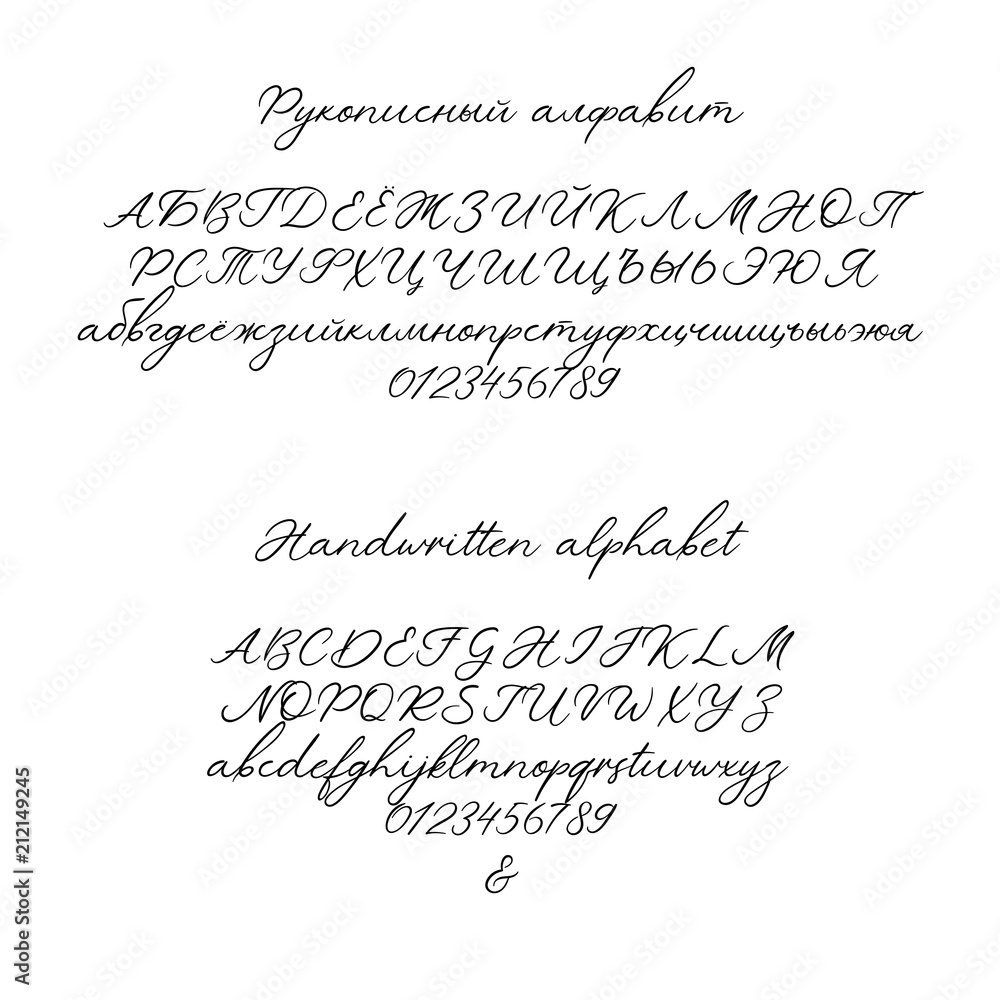 Рукописный алфавит
АБВГДЕЁЖЗИЙКЛМНОП
РСТУФХЦЧШЩЪЫЬЭЮЯ
абвгдеёжзийклмнопрстуфхцчшщъыьэюя
0123456789
Handwritten alphabet
ABCDEFGHIJKLM
NOPQRSTUVWXYZ
abcdefghijklmnopqrstuvwxyz
0123456789
&
Adobe Stock | #212149245